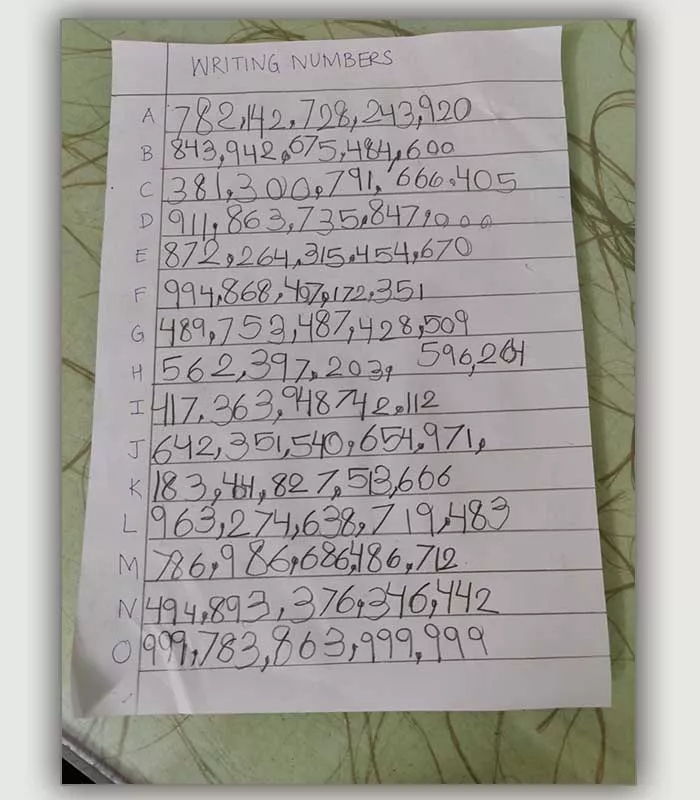 WRITING NUMBERS
A 782,142,728,243,920
B 843,942,675,484,600
C 381,300,791,666,405
D 911,863,735,847,000
E 872,264,315,454,670
F 994,868,407,172,351
G 489,753,487,428,509
H 562,397,203, 596,264
I 417,363,948742,112
J 642,351,540,654,971,
K 183,461,827,513,666
L 963,274,638,719,483
M 786,986,686,486,712
N 494,893,376,346,442
O 999,783,863,999,999